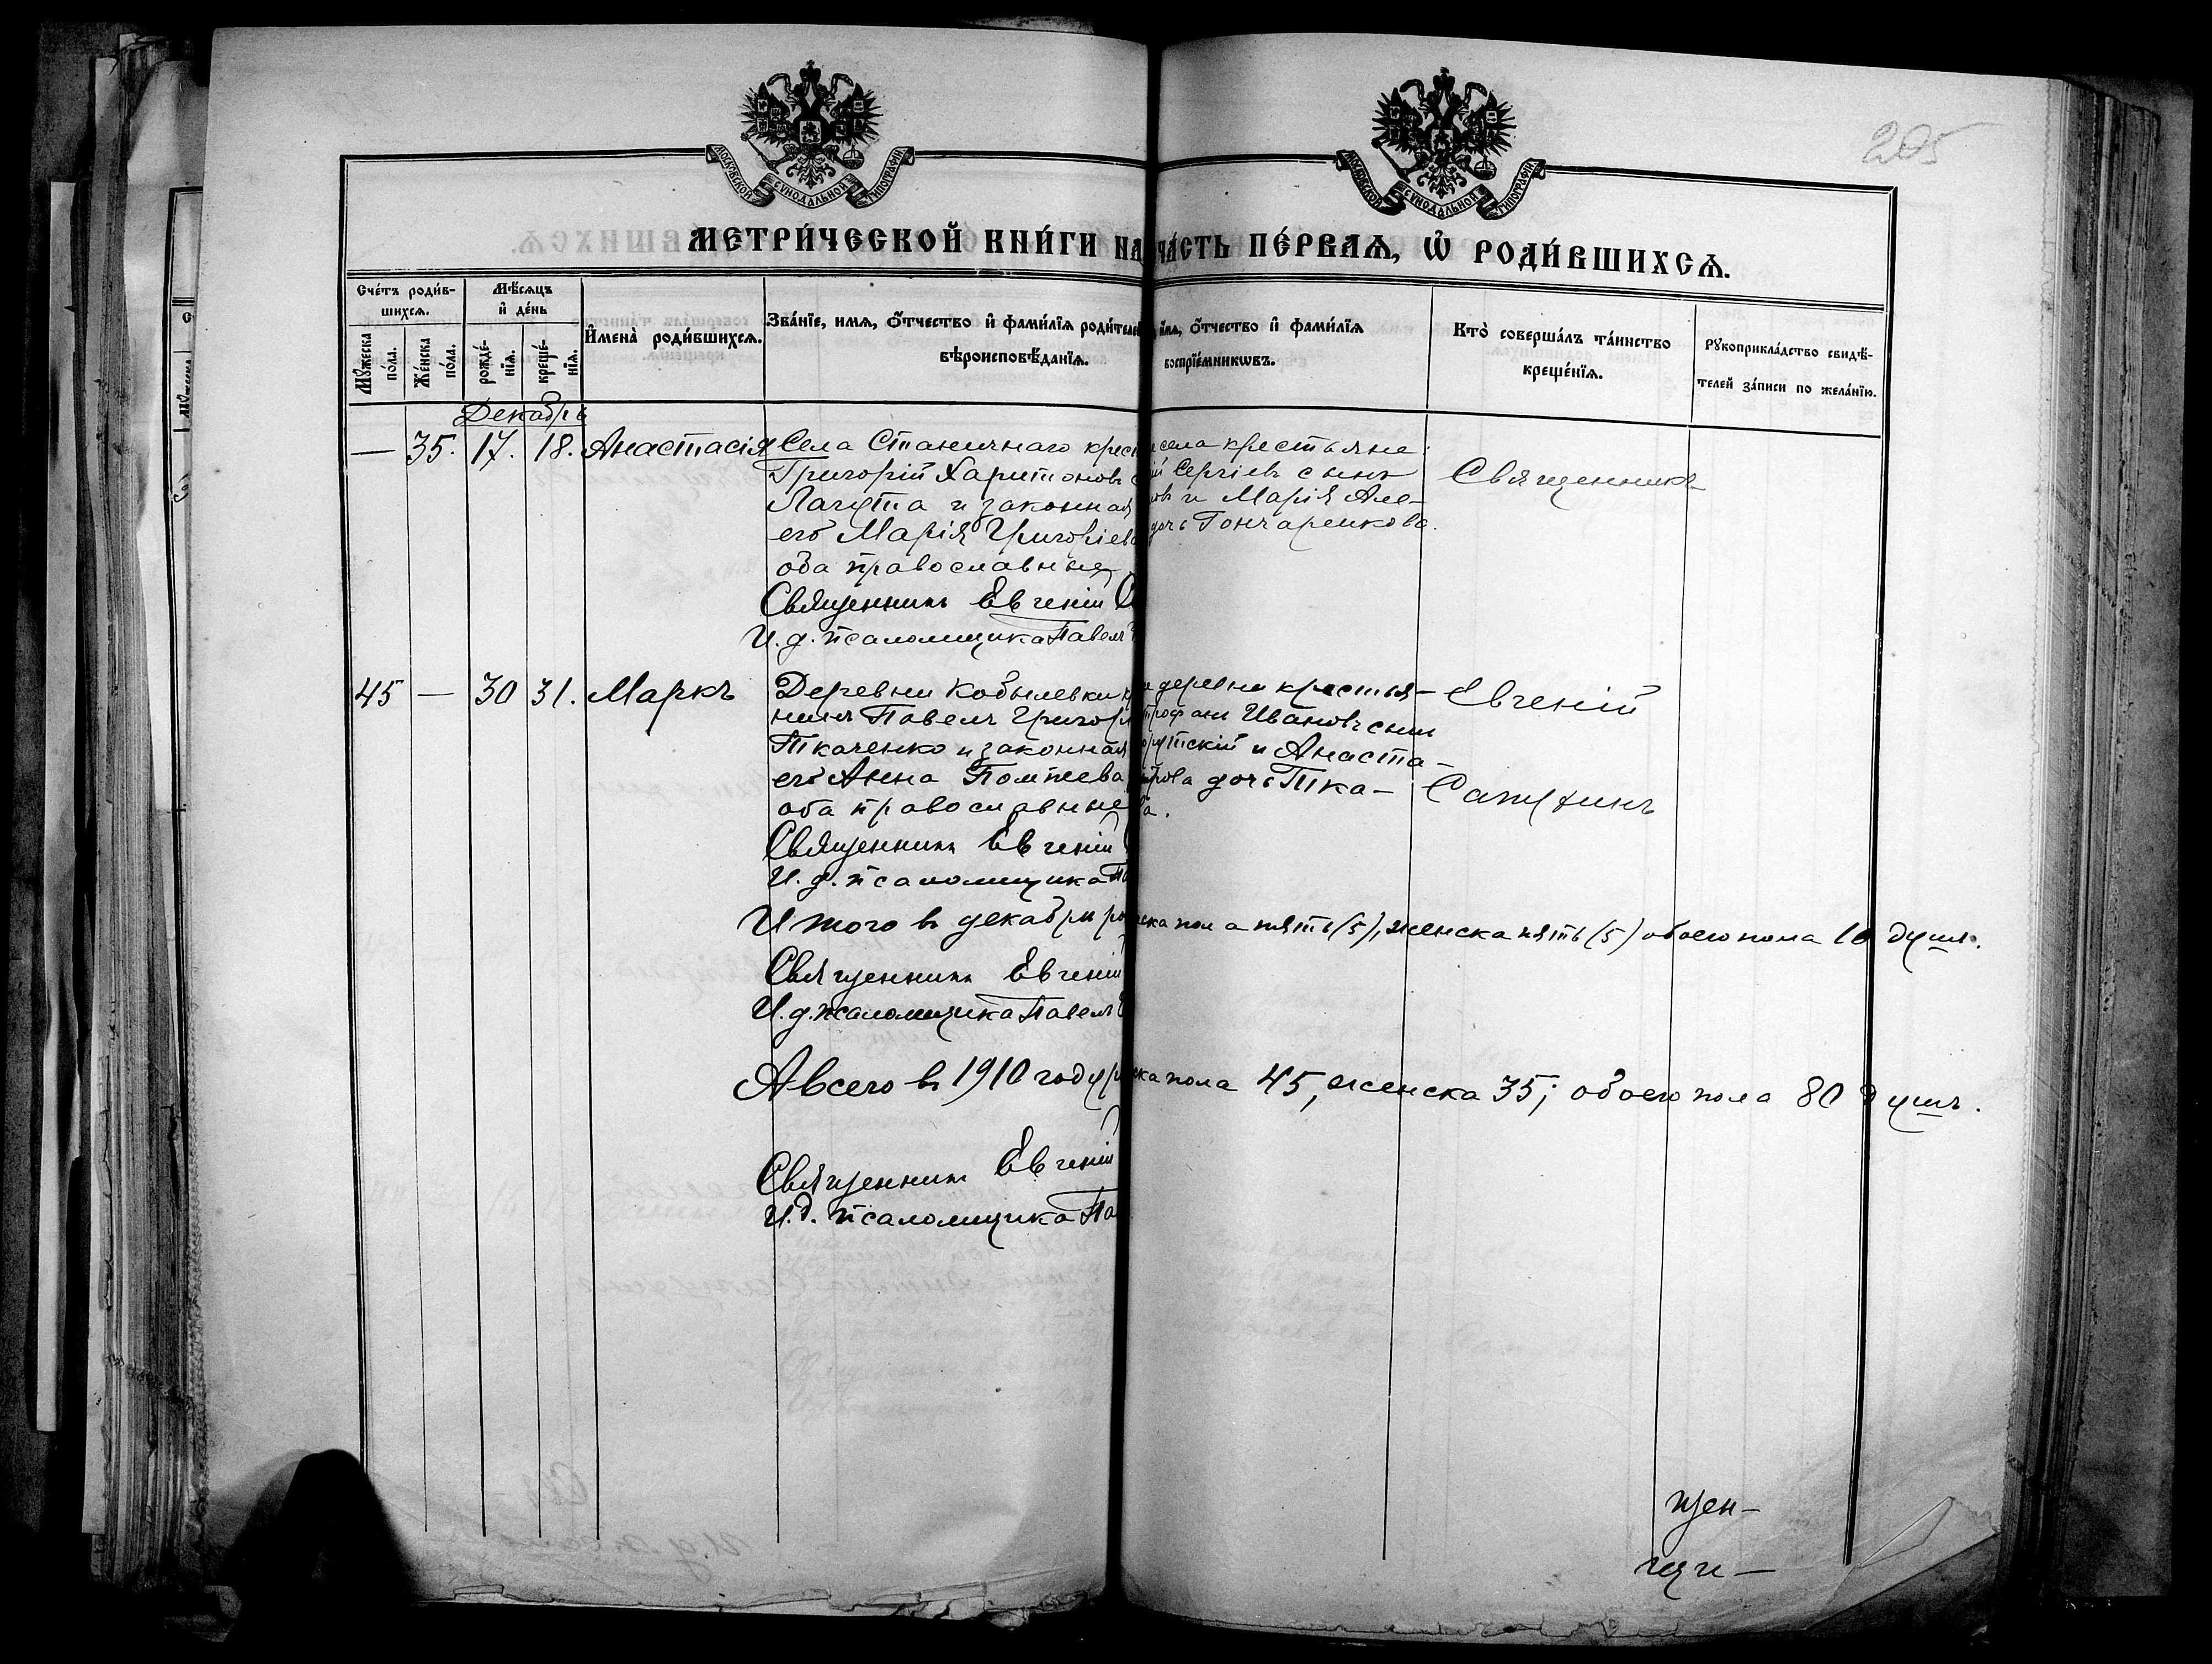 205
МОСКОВСКОЙ СѴНОДАЛЬНОЙ ТИПОГРАФІИ
МОСКОВСКОЙ СѴНОДАЛЬНОЙ ТИПОГРАФІИ
МЕТРИ́ЧЕСКОЙ КНИ́ГИ НА
ЧА́СТЬ ПЕ́РВАѦ, Ѡ҆ РОДИ́ВШИХСѦ.
Сче́тъ роди́в-
шихсѧ.
Мѣ́сѧцъ
и҆ де́нь
Мꙋ́жеска
по́ла.
Же́нска
по́ла.
рожде́-
нїѧ.
креще́-
нїѧ.
И҆мена̀ роди́вшихсѧ.
Зва́нїе, имѧ, ѻ҆́тчество и҆ фами́лїѧ роди́теле
вѣроисповѣ́данїѧ.
имѧ, ѻ҆́тчество и҆ фами́лїѧ
воспрїе́мникѡвъ.
Кто̀ соверша́лъ та́инство
креще́нїѧ.
Рꙋкоприкла́дство свидѣ́-
телей за́писи по жела́нїю.
Декабрь
— 35. 17. 18. Анастасія Села Станичнаго крест
Григорій Харитоновъ с
Лагута и законная
его Марія Григорьева
оба православные
Священникъ Евгеній С
И. д. псаломщика Павелъ
села крестьяне:
ій Сергіевъ сынъ
овъ и Марія Але-
дочь Гончаренкова.
Священникъ
45 — 30 31. Маркъ Деревни Кобылевки кр
нинъ Павелъ Григорь
Ткаченко и законная
его Анна
оба православные
Священникъ Евгеній
И. д. псаломщика Па
деревни крестья-
трофанъ Ивановъ сынъ
рутскій и Анаста-
рова дочь Тка-
ва.
Евгеній
Сапухинъ
Итого въ декабрѣ ро
ска пола пять (5), женска пять (5) обоего пола 10 душъ.
Священникъ Евгеній
И. д. псаломщика Павелъ
А всего въ 1910 году р
ска пола 45, женска 35; обоего пола 80 душъ.
Священникъ Евгеній
И. д. псаломщика Па
щен-
щи-